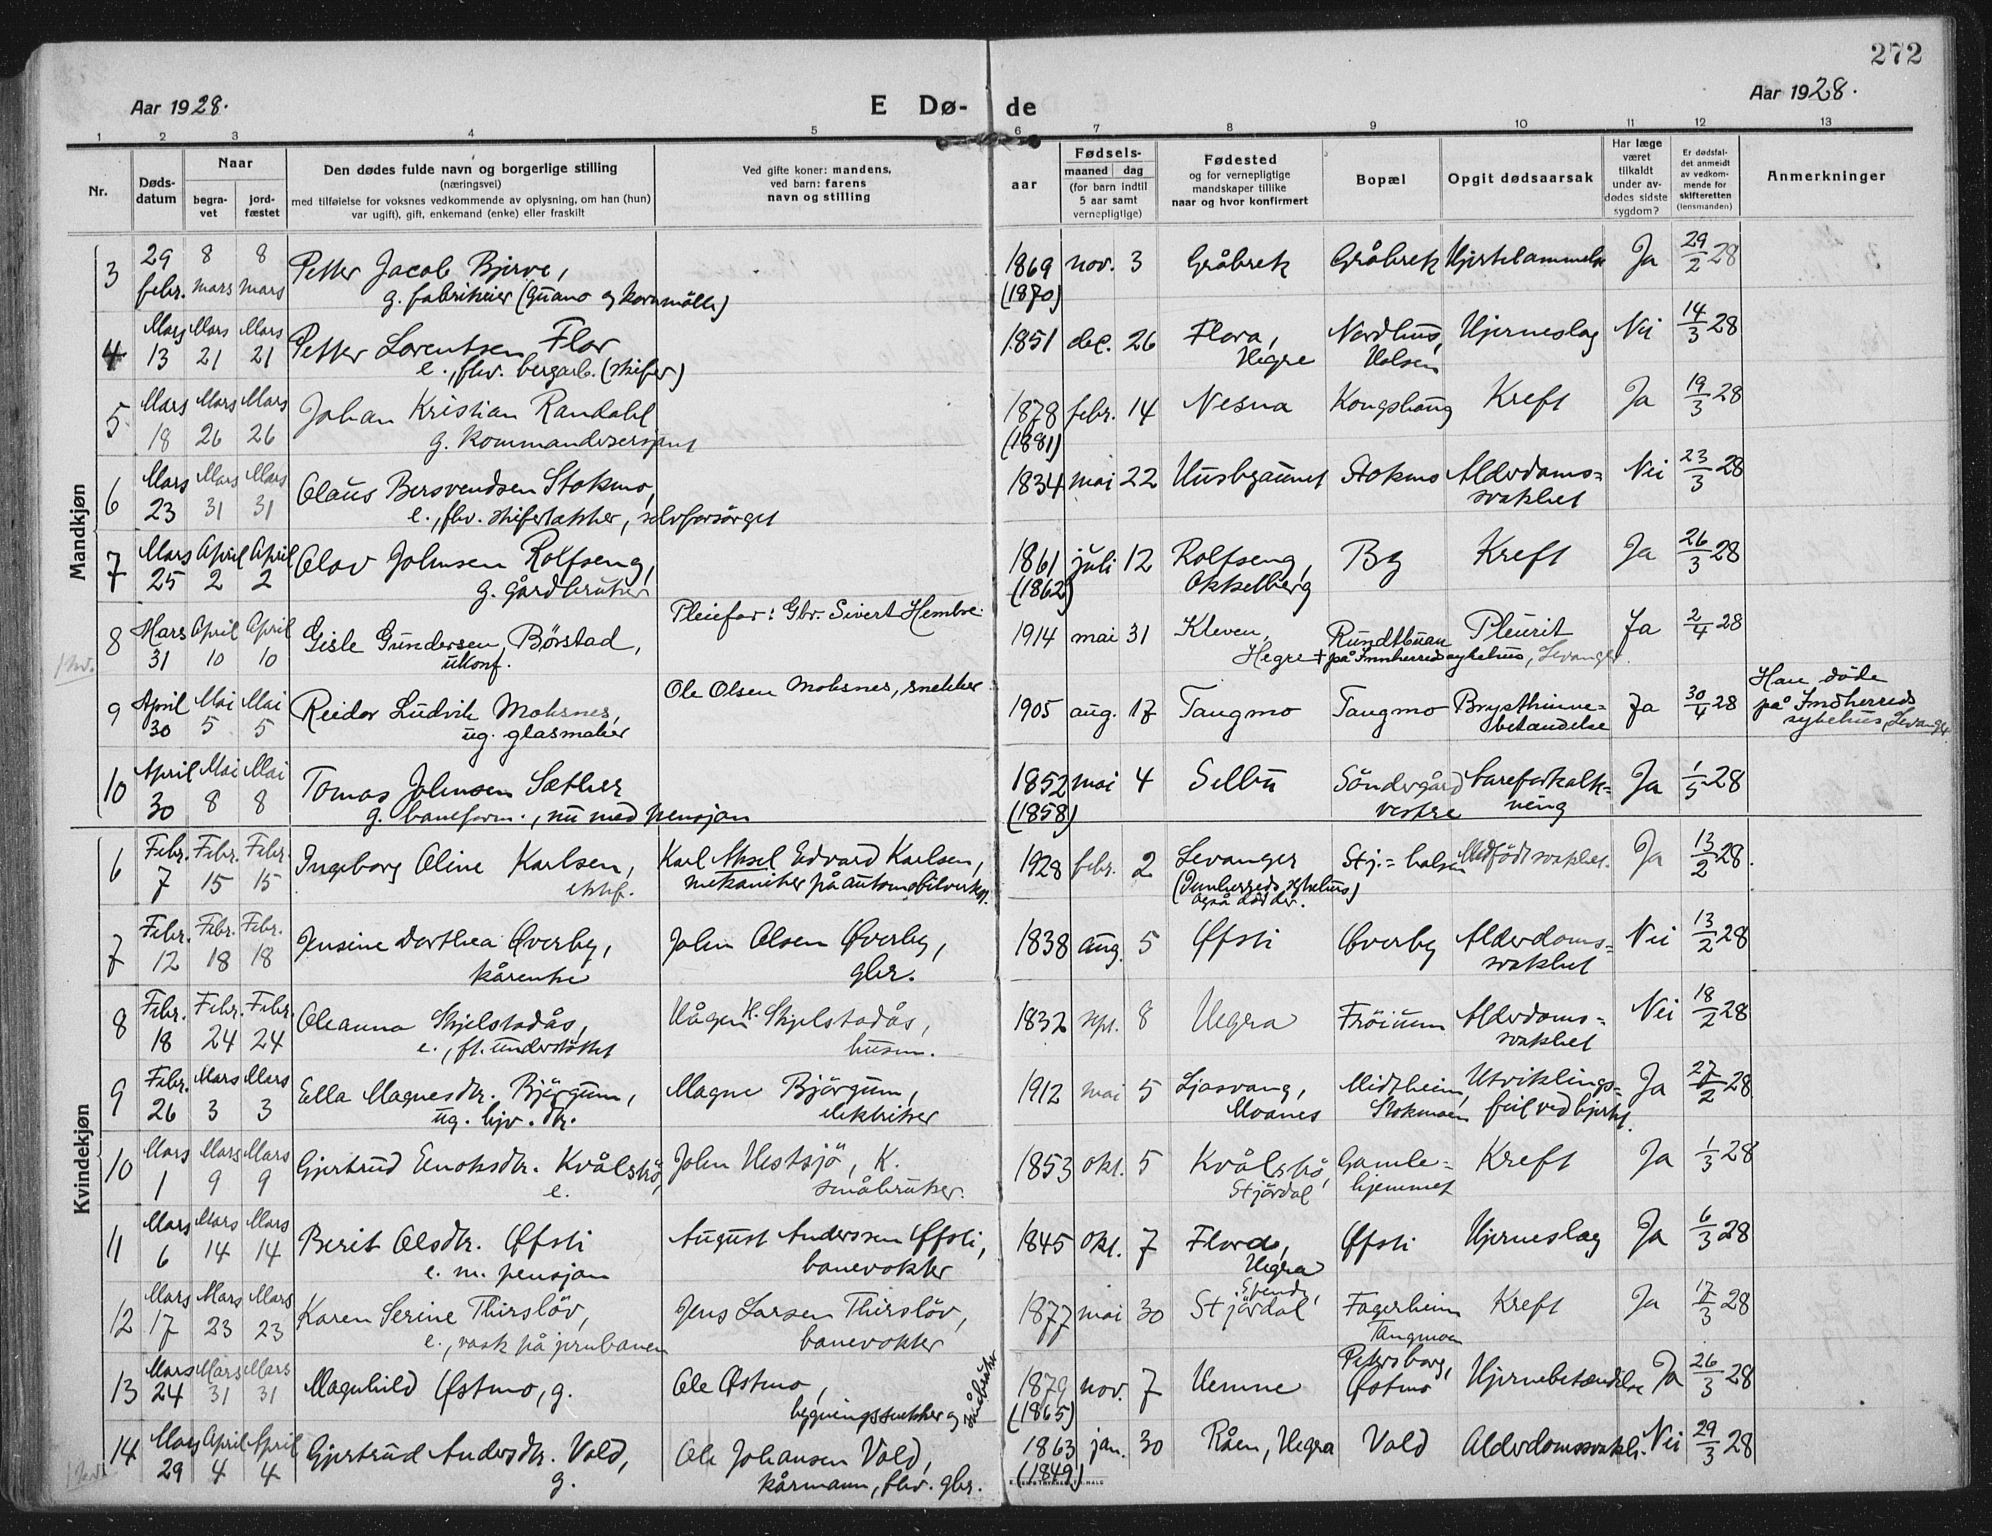 272
Aar 1928.
E Dø- de
Aar 1928.
1 2 3 4 5 6 7 8 9 10 11 12 13
Nr.
Døds-
datum
Naar
begra-
vet
jord-
fæstet
Den dødes fulde navn og borgerlige stilling
(næringsvei)
med tilføielse for voksnes vedkommende av oplysning, om han (hun)
var ugift), gift, enkemand (enke) eller fraskilt
Ved gifte koner: mandens,
ved barn: farens
navn og stilling
Fødsels-
aar
maaned dag
(for barn indtil
5 aar samt
vernepligtige)
Fødested
og for vernepligtige
mandskaper tillike
naar og hvor konfirmert
Bopæl
Opgit dødsaarsak
Har læge
været
tilkaldt
under av-
dødes sidste
sygdom?
Er dødsfal-
det anmeldt
av vedkom-
mende for
skifteretten
(lensmanden)
Anmerkninger
Mandkjøn
3 29 febr. 8 mars 8 mars Petter Jacob Bjerve, 1869 nov. 3 Gråbrek Gråbrek Hjertelammelse Ja 29/2 28
g. fabrikeier (guano og kornmölle) (1870)
4 Mars 13 Mars 21 Mars 21 Petter Lorentsen Flor 1851 dec. 26 Flora, Nordhus, Hjerneslag Nei 14/3 28
e., fhv. bergarb. (skifer) Hegre Halsen
5 Mars 18 Mars 26 Mars 26 Johan Kristian Randahl 1878 febr. 14 Nesna Kongshaug Kreft Ja 19/3 28
g. kommandersersjant (1881)
6 Mars 23 Mars 31 Mars 31 Olaus Bersvendsen Stokmo, 1834 mai 22 Husbyaunet Stokmo Alderdoms= Nei 23/3 28
e., fhv. skifertækker, selvforsörget svakhet
7 Mars 25 April 2 April 2 Olav Johnsen Rolfseng, 1861 juli 12 Rolfseng, By Kreft Ja 26/3 28
g. gårdbruker (1862) Okkelberg
8 Mars 31 April 10 April 10 Gisle Gundersen Børstad, Pleiefar: Gbr. Sivert Hembre. 1914 mai 31 Kleven, Rundthuan Pleurit Ja 2/4 28
ukonf. Hegre + på Innherred sykehus, Levanger.
9 April 30 Mai 5 Mai 5 Reidar Ludvik Moksnes, Ole Olsen Moksnes, snekker 1905 aug. 17 Tangmo Tangmo Brysthinne= Ja 30/4 28 Han døde
ug. glasmaker betændelse på Indherreds
sykehus, Levanger.
10 April 30 Mai 8 Mai 8 Tomas Johnsen Sæther 1852 mai 4 Selbu Söndergård Åreforkalk= Ja 1/5 28
g. baneform., nu med pensjon (1858) vestre ning
Kvindekjøn
6 Febr. 7 Febr. 15 Febr. 15 Ingeborg Oline Karlsen, Karl Aksel Edvard Karlsen, 1928 febr. 2 Levanger Stj.=halsen Medfödt svakhet. Ja 13/2 28.
ektef. mekaniker på automobilverksj. (Innherreds sykehus)
også död der.
7 Febr. 12 Febr. 18 Febr. 18 Jensine Dorthea Øverby, John Olsen Øverby, 1838 aug. 5 Øfsti Øverby Alderdoms= Nei 13/2 28
kårenke gbr. svakhet
8 Febr. 18 Febr. 24 Febr. 24 Oleanna Skjelstadås, Hågen H. Skjelstadås, 1832 sept. 8 Hegra Fröiunn Alderdoms= Nei 18/2 28
e., ft. understöttet husm. svakhet
9 Febr. 26 Mars 3 Mars 3 Ella Magnesdtr. Björgum, Magne Björgum, 1912 mai 5 Ljosvang, Midtheim, Utviklings= Ja 27/2 28
ug. hjv. dtr. elektriker Moanes Stokmoen feil ved hjertet.
10 Mars 1 Mars 9 Mars 9 Gjertrud Enoksdtr. Kvålsbö, John Hestsjö, K. 1853 okt. 5 Kvålsbö, Gamle= Kreft Ja 1/3 28
e. småbruker. Stjördal hjemmet
11 Mars 6 Mars 14 Mars 14 Berit Olsdtr. Øfsti August Anderssen Øfsti, 1845 okt. 7 Flora, Øfsti Hjerneslag Ja 6/3 28
e. m. pensjon banevokter Hegra
12 Mars 17 Mars 23 Mars 23 Karen Serine Thirslöv, Jens Larsen Thirslöv, 1877 mai 30 Stjördal Fagerheim Kreft Ja 17/3 28
e., vask på jernbanen banevokter Tangmoen
13 Mars 24 Mars 31 Mars 31 Magnhild Østmo, g. Ole Østmo, 1879 nov. 7 Hemne Petersborg, Østmo Hjernebetændelse Ja 26/3 28
bygningssnekker og småbruker (1865)
14 Mars 29 April 4 April 4 Gjertrud Andersdtr. Vold, Ole Johansen Vold, 1863 jan. 30 Råen, Hegra Vold Alderdomssvakh. Nei 29/3 28
g. kårmann, fhv. gbr. (1849)